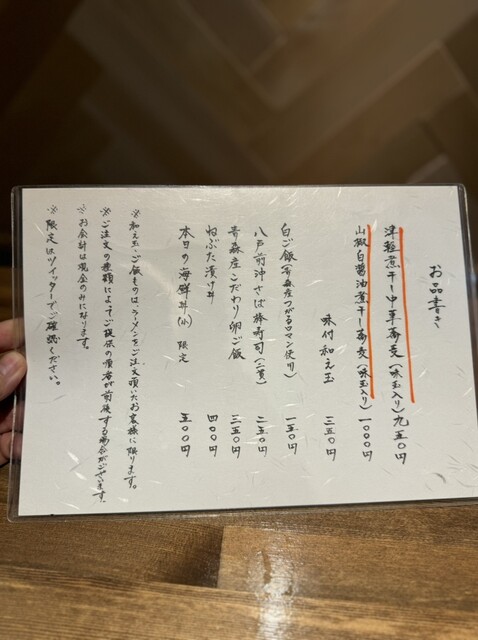 お品書き
津軽煮干中華蕎麦(味玉入り)九五〇円
山椒白醤油煮干し蕎麦(味玉入り)一〇〇〇円
味付和え玉 三五〇円
白ご飯(青森産つがるロマン使用) 一五〇円
八戸前沖さば棒寿司(二貫) 二五〇円
青森産こだわり卵ご飯 三五〇円
ねぶた漬け丼 四〇〇円
本日の海鮮丼(小) 限定 五〇〇円
※和え玉・ご飯ものは、ラーメンをご注文頂いたお客様に限ります。
※ご注文の種類によってご提供の順番が前後する場合がございます。
※お会計は現金のみになります。
※限定はツイッターでご確認ください。